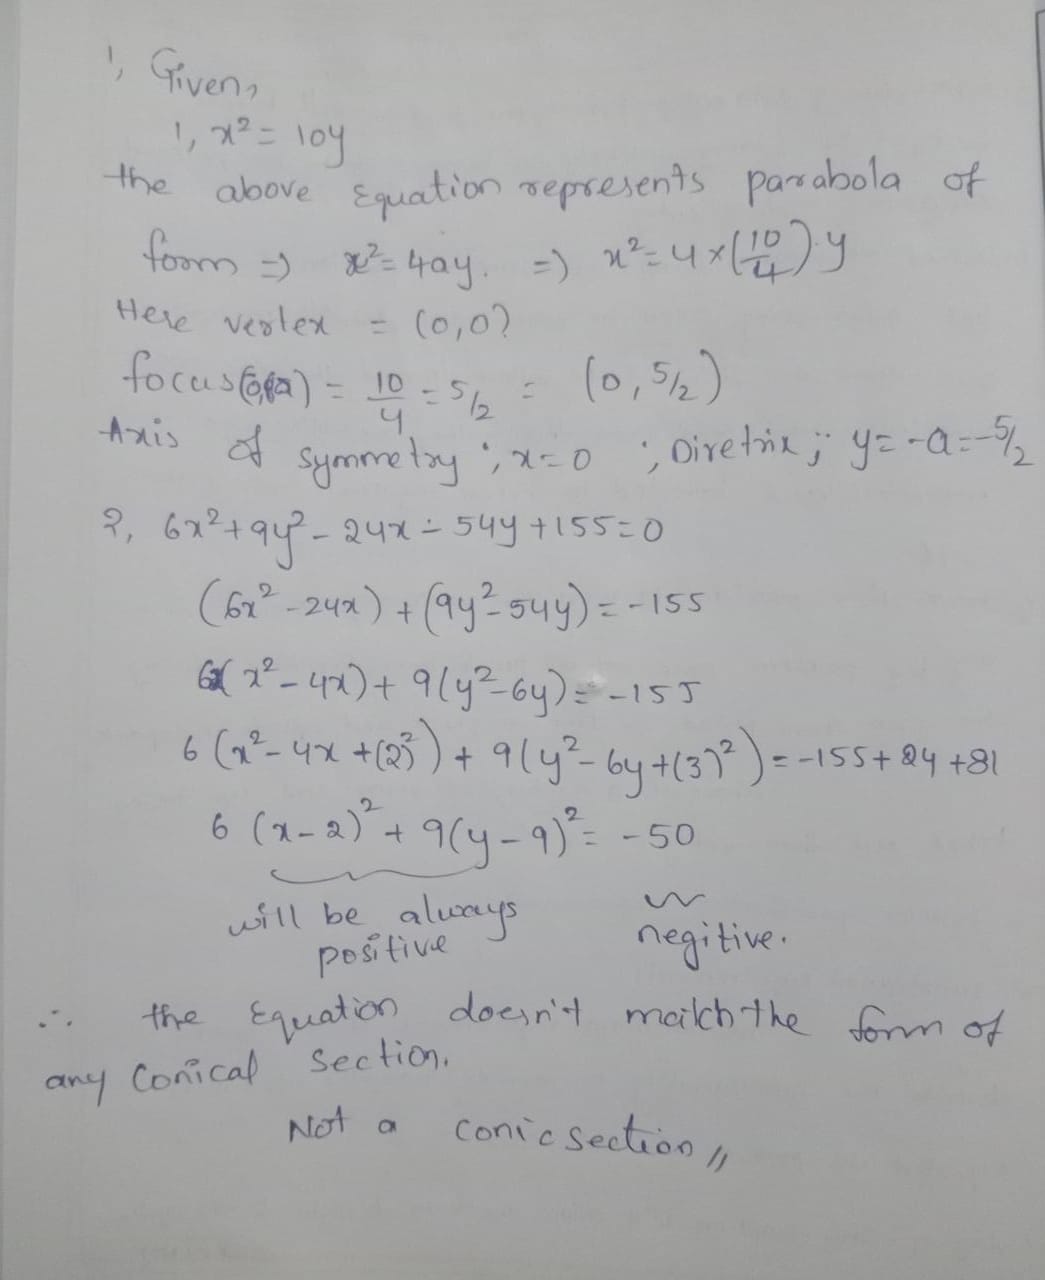 1, Given,
1, x² = 10y
the above Equation represents parabola of
form => x² = 4ay. => x² = 4x(10/4).y
Here vertex = (0,0)
focus(0,a) = 10/4 = 5/2 = (0, 5/2)
Axis of symmetry ; x=0 ; Diretrix ; y = -a = -5/2
2, 6x² + 9y² - 24x - 54y + 155 = 0
(6x² - 24x) + (9y² - 54y) = -155
6(x² - 4x) + 9(y² - 6y) = -155
6(x² - 4x + (2)²) + 9(y² - 6y + (3)²) = -155 + 24 + 81
6 (x-2)² + 9(y-9)² = -50
will be always negitive.
positive
∴ the Equation doesn't match the form of
any Conical Section.
Not a conic section //